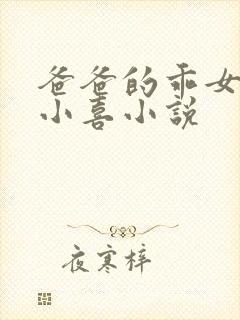 爸爸的乖女
小喜小説
夜寒梓